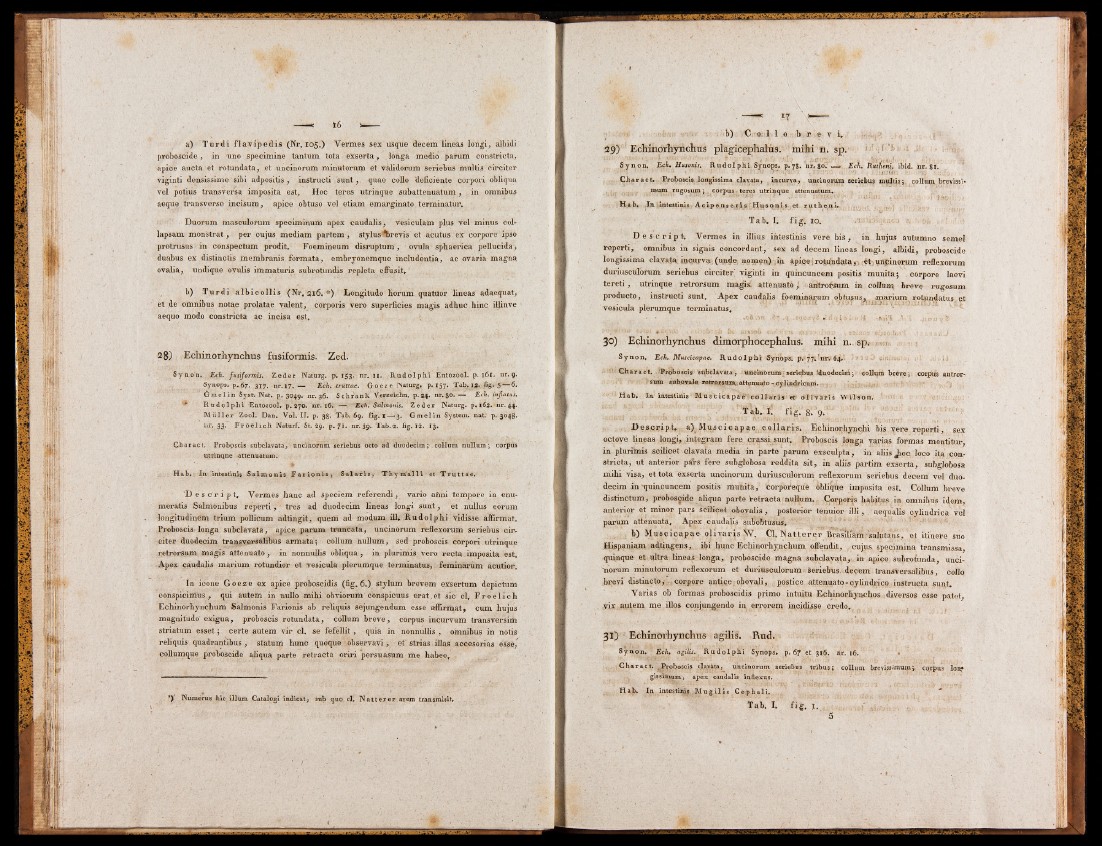 16
a) Turdi flavipedis (Nr. 105.) Vermes sex usque decem lineas longi, albidi
proboscide, in uno specimine tantum tota exserta, longa medio parum constricta,
apice aucta et rotundata, et uncinorum minutorum et validorum seriebus multis circiter
viginti densissime sibi adpositis, instructi sunt, quae collo deficiente corpori obliqua
vel potius transversa imposita est. Hoc teres utrinque subattenuatum, in omnibus
aeque transverse incisum, apice obtuso vel etiam emarginato terminatur.
Duorum masculorum speciminum apex caudalis, vesiculam plus vel minus col-
lapsam monstrat, per cujus mediam partem, stylus brevis et acutus ex corpore ipso
protrusus in conspectum prodit. Foemineum disruptum, ovula sphaerica pellucida,
duabus ex distinctis membranis formata, embryonemque includentia, ac ovaria magna
ovalia, undique ovulis immaturis subrotundis repleta effusit.
b) Turdi albicollis (Nr. 216. *) Longitudo horum quatuor lineas adaequat,
et de omnibus notae prolatae valent, corporis vero superficies magis adhuc hinc illinve
aequo modo constricta ac incisa est.
28) Echinorhynchus fusiformis. Zed.
Synon. Ech. fusiformis. Zeder Naturg. p. 153. nr. 11. Rudolphi Entozool. p. 261. nr. 9.
Synops. p. 67. 317. nr. 17. — Ech. truttae. Goeze Naturg. p. 157. Tab. 12. fig. 5—6.
Gmelin Syst. Nat. p. 3049. nr. 36. Schrank Verzeichn. p. 24. nr. 30. — Ech. inflatus.
Rudolphi Entozool. p. 270. nr. 16. — Ech. Salmonis. Zeder Naturg. p. 162. nr. 44.
Müller Zool. Dan. Vol. II. p. 38. Tab. 69. fig. 1—3. Gmelin System. nat. p. 3048.
nr. 33. Froelich Naturf. St. 29. p. 71. nr. 39. Tab. 2. fig. 12. 13.
Charact. Proboscis subclavata, uncinorum seriebus octo ad duodecim; collum nullum; corpus
utrinque attenuatum.
Hab. In intestinis Salmonis Farionis, Salaris, Thymalli et Truttae.
Descript. Vermes hanc ad speciem referendi, vario anni tempore in enu-
meratis Salmonibus reperti, tres ad duodecim lineas longi sunt, et nullus eorum
longitudinem trium pollicum adtingit, quem ad modum ill. Rudolphi vidisse affirmat.
Proboscis longa subclavata, apice parum truncata, uncinorum reflexorum seriebus cir-
citer duodecim transversalibus armata; collum nullum, sed proboscis corpori utrinque
retrorsum magis attenuato, in nonnullis obliqua, in plurimis vero recta imposita est.
Apex caudalis marium rotundior et vesicula plerumque terminatus, feminarum acutior.
In icone Goeze ex apice proboscidis (fig. 6.) stylum brevem exsertum depictum
conspicimus, qui autem in nullo mihi obviorum conspicuus erat et sic cl. Froelich
Echinorhynchum Salmonis Farionis ab reliquis sejungendum esse affirmat, cum hujus
magnitudo exigua, proboscis rotundata, collum breve, corpus incurvum transversim
striatum esset; certe autem vir cl. se fefellit, quia in nonnullis, omnibus in notis
reliquis quadrantibus, statum hunc quoque observavi, et strias illas accesorias esse,
collumque proboscide aliqua parte retracta oriri persuasum me habeo.
*) Numerus hic illum Catalogi indicat, sub quo cl. Natterer avem transmisit.
17
b) Collo brevi.
29) Echinorhynchus plagicephalus. mihi n. sp.
Synon. Ech. Husonis. Rudolphi Synops. p. 75. nr. 50. — Ech. Rutheni. ibid. nr. 51.
Charact. Proboscis longissima clavata, incurva, uncinorum seriebus multis; collum brevissi-
mum rugosum; corpus teres utrinque attenuatum.
Hab. In intestinis Acipenseris Husonis et rutheni.
Tab. I. fig. 10.
Descript. Vermes in illius intestinis vere bis, in hujus autumno semel
reperti, omnibus in signis concordant, sex ad decem lineas longi, albidi, proboscide
longissima clavata incurva (unde nomen) in apice rotundata, et uncinorum reflexorum
duriusculorum seriebus circiter viginti in quincuncem positis munita; corpore laevi
tereti, utrinque retrorsum magis attenuato, antrorsum in collum breve rugosum
producto, instructi sunt. Apex caudalis foeminarum obtusus, marium rotundatus et
vesicula plerumque terminatus.
30) Echinorhynchus dimorphocephalus. mihi n. sp.
Synon. Ech. Muscicapae. Rudolphi Synops. p. 77. nr. 64.
Charact. Proboscis subclavata, uncinorum seriebus duodecim; collum breve; corpus antror-
sum subovale retrorsum attenuato-cylindricum.
Hab. In intestinis Muscicapae collaris et olivaris Wilson.
Tab. I. fig. 8. 9.
Descript. a) Muscicapae collaris. Echinorhynchi bis vere reperti, sex
octove lineas longi, integram fere crassi sunt. Proboscis longa varias formas mentitur,
in plurimis scilicet clavata media in parte parum exsculpta, in aliis hoc loco ita con-
stricta, ut anterior pars fere subglobosa reddita sit, in aliis partim exserta, subglobosa
mihi visa, et tota exserta uncinorum duriusculorum reflexorum seriebus decem vel duo-
decim in quincuncem positis munita, corporeque oblique imposita est. Collum breve
distinctum, proboscide aliqua parte retracta nullum. Corporis habitus in omnibus idem,
anterior et minor pars scilicet obovalis, posterior tenuior illi, aequalis cylindrica vel
parum attenuata. Apex caudalis subobtusus.
b) Muscicapae olivaris W. Cl. Natterer Brasiliam salutans, et itinere suo
Hispaniam adtingens, ibi hunc Echinorhynchum offendit, cujus specimina transmissa,
quinque et ultra lineas longa, proboscide magna subclavata, in apice subrotunda, unci-
norum minutorum reflexorum et duriusculorum seriebus decem transversalibus, collo
brevi distincto, corpore antice obovali, postice attenuato-cylindrico instructa sunt.
Varias ob formas proboscidis primo intuitu Echinorhynchos diversos esse patet,
vix autem me illos conjungendo in errorem incidisse credo.
31) Echinorhynchus agilis. Rud.
Synon. Ech. agilis. Rudolphi Synops. p. 67 et 316. nr. 16.
Charact. Proboscis clavata, uncinorum seriebus tribus; collum brevissimum; corpus lon-
gissimum, apex caudalis inflexus.
Hab. In intestinis Mugilis Cephali.
Tab. I. fig. 1.
5